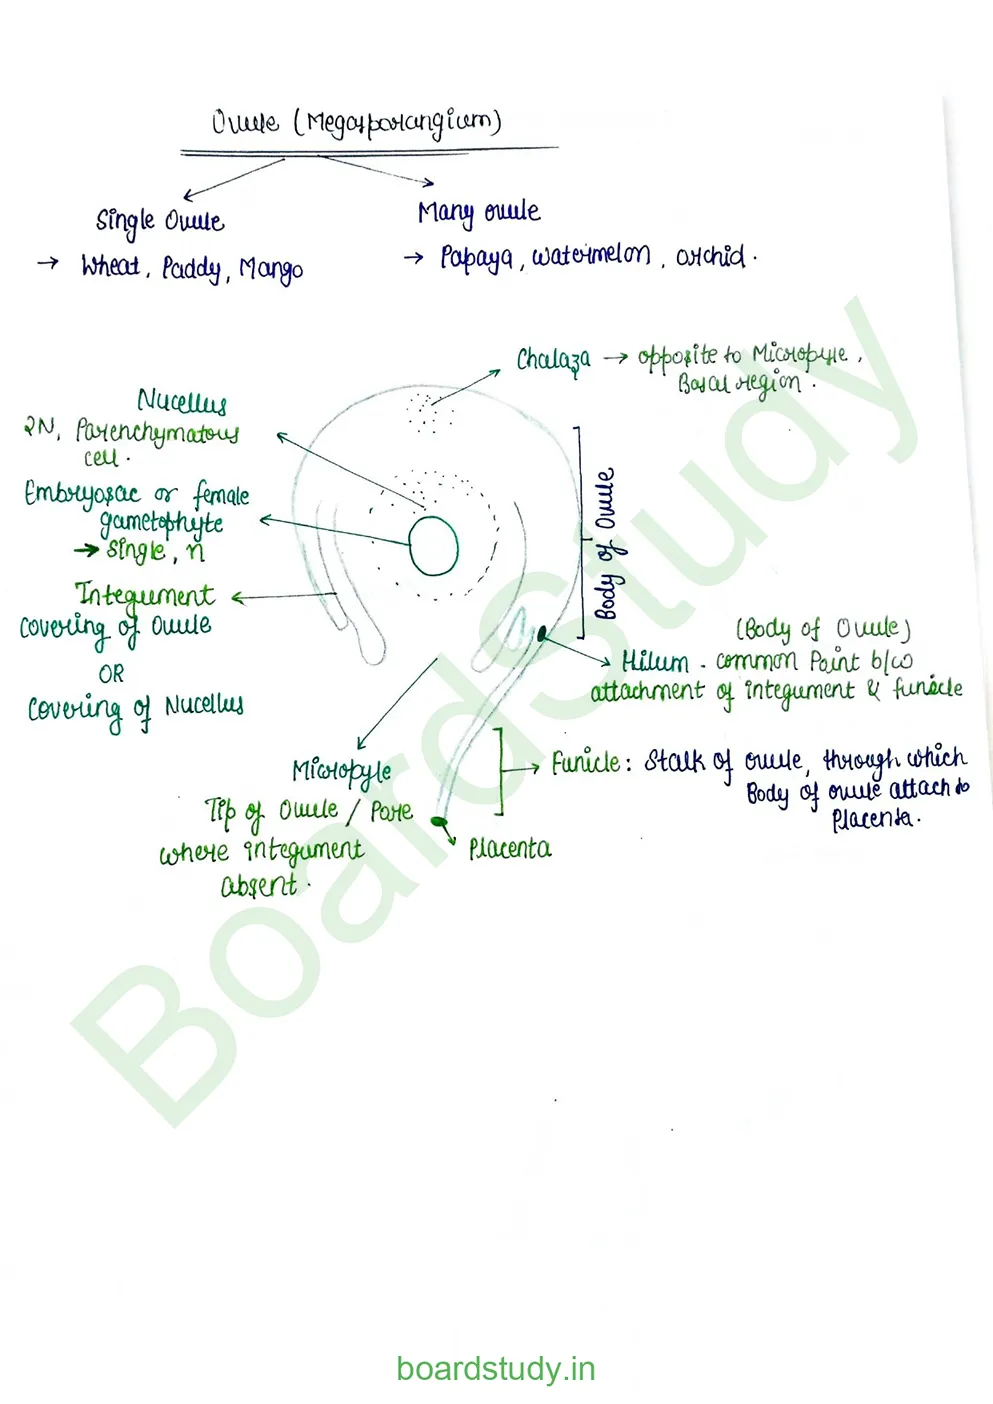 Ovule (Megasporangium)
Single Ovule
→ Wheat, Paddy, Mango
Many ovule
→ Papaya, watermelon, orchid.
Chalaza → opposite to Micropyle,
Basal region.
Nucellus
2N, Parenchymatous
cell.
Embryosac or female
gametophyte
→ single, n
Integument
covering of Ovule
OR
covering of Nucellus
Body of Ovule
(Body of Ovule)
Hilum. common Point b/w
attachment of integument & funicle
Micropyle
Tip of Ovule / Pore
where integument
absent.
Funicle: Stalk of ovule, through which
Body of ovule attach to
Placenta.
Placenta
BoardStudy
boardstudy.in